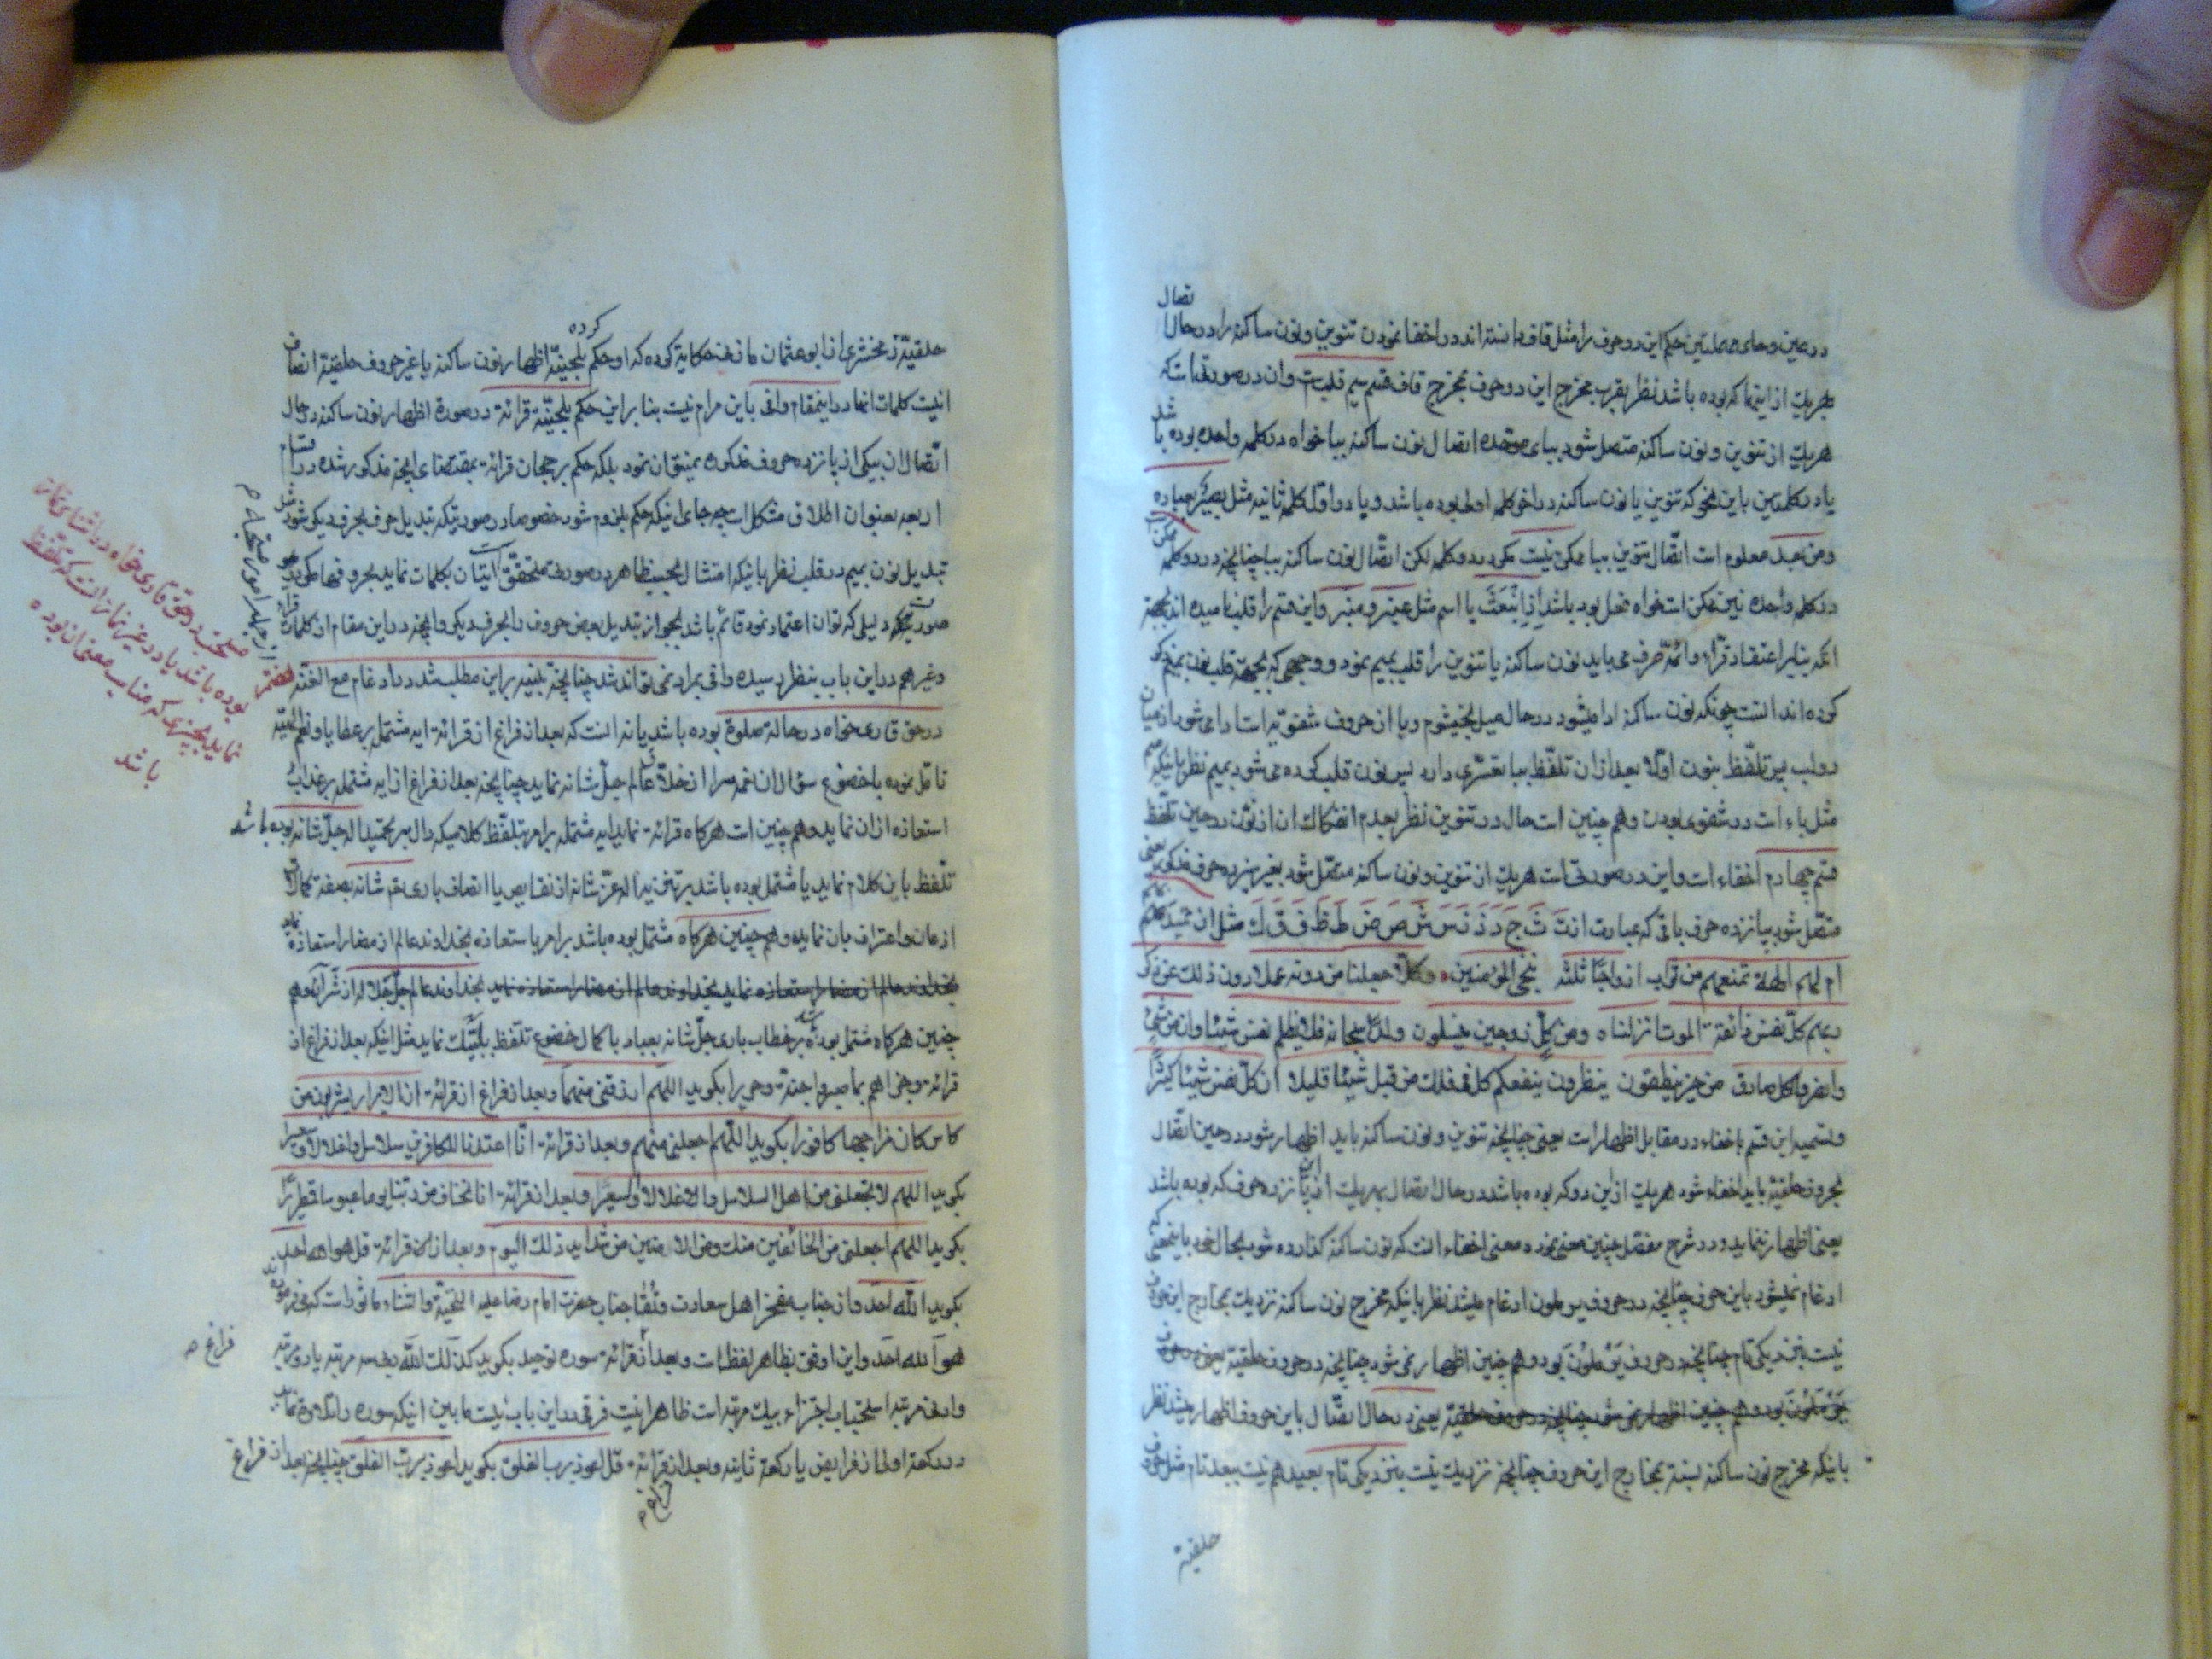 در عین و حای مهملتین حکم این دو حرف را مثل قاف دانسته اند در اخفا نمودن تنوین و نون ساکنه را در حال اتصال
بهریك از اینها که بوده باشد نظر بقرب مخرج این دو حرف بمخرج قاف قسم سیم قلبست و ان در صورتی است که
هریك از تنوین و نون ساکنه متصل شود ببای موحده اتصال نون ساکنه ببا خواه در کلمه واحده بوده باشد
یا در کلمتین باین نحو که تنوین یا نون ساکنه در اخر کلمه اولی بوده باشد و با در اول کلمه ثانیه مثل بصیر بعباده
و من بعد معلوم است اتصال تنوین ببا ممکن نیست مگر در دو کلمه لکن اتصال نون ساکنه ببا چنانچه در دو کلمه ممکن
در کلمه واحده نیز ممکن است خواه فعل بود باشد اذ انبعث یا اسم مثل عنبر و منبر و این قسم را قلب نامیده اند بجهة
انکه بنابر اعتقاد قراء و ائمه صرف می باید نون ساکنه یا تنوین را قلب بمیم نمود و وجهی که بجهة قلب نون بمیم ذکر
کرده اند انست چونکه نون ساکنه ادا میشود در حال میل بخیشوم و با از حروف شفویه است ادا می شود از میان
دو لب پس تلفظ بنون اولا بعد از ان تلفظ ببا تعسری دارد پس نون قلب کرده می شود بمیم نظر باینکه میم
مثل باء است در شفوی بودن و هم چنین است حال در تنوین نظر بعدم انفکاك ان از نون در حین تلفظ
قسم چهارم اخفاء است و این در صورتی است هریك از تنوین و نون ساکنه متصل شود بغیر سیزده حرف مذکور یعنی
متصل شود بپانزده حرف باقی که عبارت است ت ث ج د ذ ز س ش ص ض ط ظ ف ق ك مثل ان تمید بکم
ام لهم الهة تمنعهم من تراب ازواجا ثلثه ننجی المؤمنین وکلا جعلنا من دونه عملا دون ذلك عن ذکر
ربهم کل نفس ذائقة الموت انزلناه ومن کل زوجین ینسلون ولدا سبحانه فلا تظلم نفس شیئا وان من شیء
وانصرفا کل صادق من جز ینطقون ینظرون ینفعکم کل فی فلك من قبل شیئا قلیلا ان کل نفس شیئا کیرا
و تسمیه این قسم باخفاء در مقابل اظهار است یعنی چنانچه تنوین و نون ساکنه باید اظهار شود در حین اتصال
بحروف حلقیه باید اخفاء شود هریك از این دو که بوده باشد در حال اتصال بهریك از این پانزده حرف که بوده باشد
یعنی اظهار ننماید و در شرح مفصل چنین معنی نموده معنی اخفاء انست که نون ساکنه گذارده شود بحال خود باینمعنی که
ادغام نمیشود باین حروف چنانچه در حروف یرملون ادغام میشد نظر باینکه مخرج نون ساکنه نزدیك بمخارج این حروف
نیست بنزدیکی تام چنانچه در حروف یرملون بود و هم چنین اظهار نمی شود چنانچه در حروف حلقیه
یعنی در حال اتصال باین حروف اظهار میشد نظر
باینکه مخرج نون ساکنه نسبة بمخارج این حروف چنانچه نزدیك نیست بنزدیکی تام بعید هم نیست ببعد تام مثل حروف
حلقیة
حلقیة زمخشری از ابو عثمان مازنی حکایة کرده که او حکم بلحنیة اظهار نون ساکنه با غیر حروف حلقیة انصاف
انست کلمات انها در اینمقام وافی باین مرام نیست بنابراین حکم بلحنیة قرائة در صورة اظهار نون ساکنه در حال
اتصال ان بیکی از پانزده حروف مذکوره نمیتوان نمود بلکه حکم برجحان قرائة بمقتضای انچه مذکور شده در اقسام
اربعه بعنوان اطلاق مشکل است چه جای اینکه حکم بلزوم شود خصوصا در صورتیکه تبدیل حرف بحرف دیگر شود مثل
تبدیل نون بمیم در قلب نظر باینکه امتثال بحسب ظاهر در صورت متحقق است اتیان بکلمات نماید بحروفها مذکوره
دلیلی که توان اعتماد نمود قائم باشد بجواز تبدیل بعض حروف را بحرف دیگر و انچه در این مقام از کلمات قراء
و غیرهم در این باب بنظر رسیده وافی بمراد نمی تواند شد چنانچه تنبیه براین مطلب شد در ادغام مع الغنة
در حق قاری خواه در حالة صلوة بوده باشد یا نه انست که بعد از فراغ از قرائة ایه مشتمل برعطایا و نعم الهیه
تامل نموده با خضوع سؤال ان نعمه را از خلاق عالم جل شانه نماید چنانچه بعد از فراغ از ایه مشتمله برعذاب
استعاذه از ان نماید و هم چنین است هرگاه قرائة نماید ایه مشتمله بر امر بتلفظ کلامیکه دال بر تمجید اله جل شانه بوده باشد
تلفظ باین کلام نماید یا مشتمل بوده باشد بر تنزیه اله عز شانه از نقایص یا اتصاف باری تعالی شانه بصفة کمال
اذعان و اعتراف بان نماید و هم چنین هرگاه مشتمل بوده باشد بر امر باستعاذه بخداوند عالم از مضار استعاذه نماید
بخداوند عالم جل جلاله از شر آن و هم
چنین هرگاه مشتمل بوده باشد برخطاب باری جل شانه بعباد با کمال خضوع تلفظ بلبیك نماید مثل اینکه بعد از فراغ از
قرائة وجزاهم بما صبروا جنة وحریرا بگوید اللهم ارزقنی منهما و بعد از فراغ از قرائة ان الابرار یشربون من
کاس کان مزاجها کافورا بگوید اللهم اجعلنی منهم و بعد از قرائة انا اعتدنا للکافرین سلاسل واغلالا وسعیرا
بگوید اللهم لا تجعلنی من اهل السلاسل والاغلال والسعیر و بعد از قرائة انا نخاف من ربنا یوما عبوسا قمطریرا
بگوید اللهم اجعلنی من الخائفین منك ومن الامنین من شداید ذلك الیوم و بعد از قرائة قل هو الله احد
بگوید الله احد و از جناب مفخر اهل سعادت و تقا جناب حضرت امام رضا علیه التحیة والثناء ماثور است که می فرموده اند
هو الله احد و این اوفق بظاهر لفظ است و بعد از قرائة سوره توحید بگوید کذلك الله ربی سه مرتبه یا دو مرتبه
و ادنی مرتبه استحباب اجتزاء بیك مرتبه است ظاهرا نیست فرقی در این باب نیست مابین اینکه سوره را تلاوة نماید
در رکعة اولی از فرایض یا رکعة ثانیه و بعد از قرائة قل اعوذ برب الفلق بگوید اعوذ برب الفلق چنانچه بعد از فراغ
فراغ
از جمله امور مستحبه
مستحبه در حق قاری خواه در اثنای نماز
بوده باشد یا در غیر نماز انست که تلفظ
نماید بچیزی که مناسب معنی ان بوده
باشد